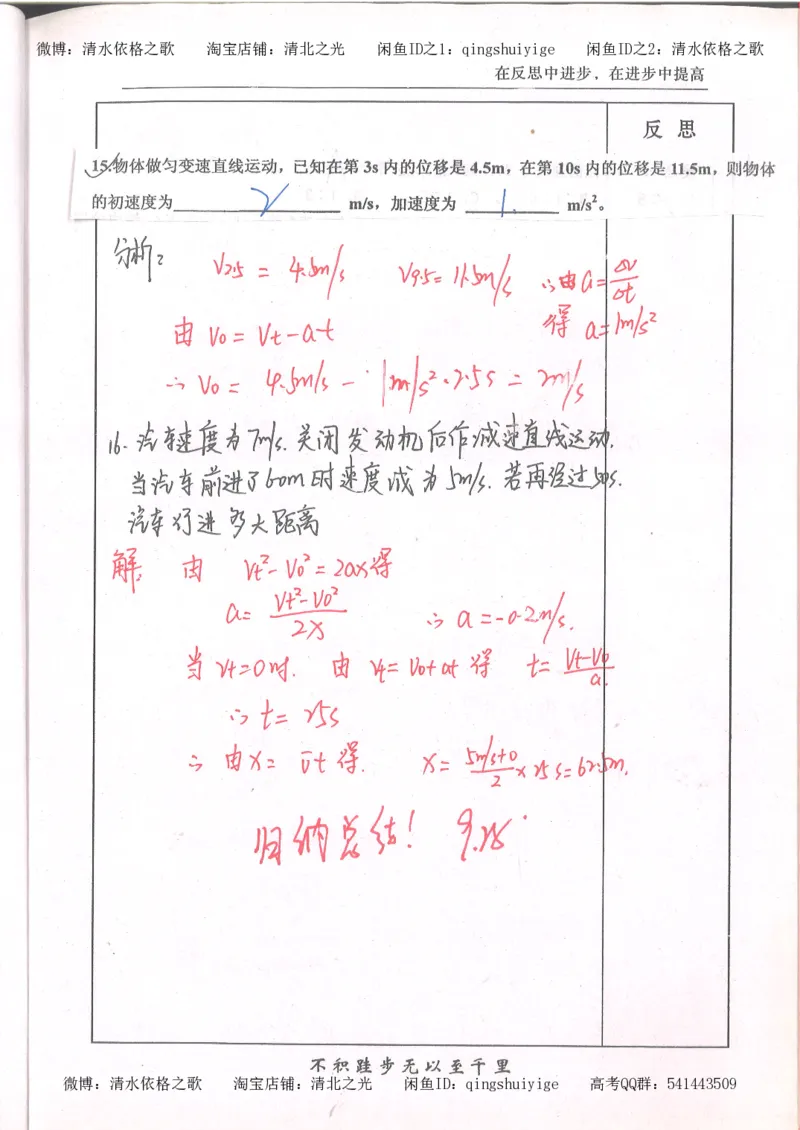 微博：清水依格之歌 淘宝店铺：清北之光 闲鱼ID之1：qingshuiyige 闲鱼ID之2：清水依格之歌
在反思中进步，在进步中提高
反 思
15.物体做匀变速直线运动，已知在第 3s 内的位移是 4.5m，在第 10s 内的位移是 11.5m，则物体
的初速度为 2 m/s，加速度为 1 m/s²。
分析：
V2.5 = 4.5m/s V9.5= 11.5m/s ∴由 a= Δv/Δt
由 V0 = Vt-at 得 a=1m/s²
∴ V0 = 4.5m/s - 1m/s²·2.5s = 2m/s
16. 汽车速度为7m/s.关闭发动机后作减速直线运动.
当汽车前进了60m时速度减为5m/s.若再经过50s.
汽车行进多大距离
解： 由 Vt²-V0²=2ax得
a= Vt²-V0²/2x ∴ a=-0.2m/s.
当 Vt=0时. 由 Vt=V0+at 得 t= Vt-V0/a.
∴ t= 25s
∴ 由X= v̄t 得. X= 5m/s+0/2 × 25s=62.5m.
归纳总结! 9.28
不积跬步无以至千里
微博：清水依格之歌 淘宝店铺：清北之光 闲鱼ID：qingshuiyige 高考QQ群：541443509